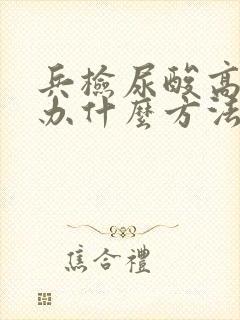 兵檢尿酸高
办什麼方法
焦合禮